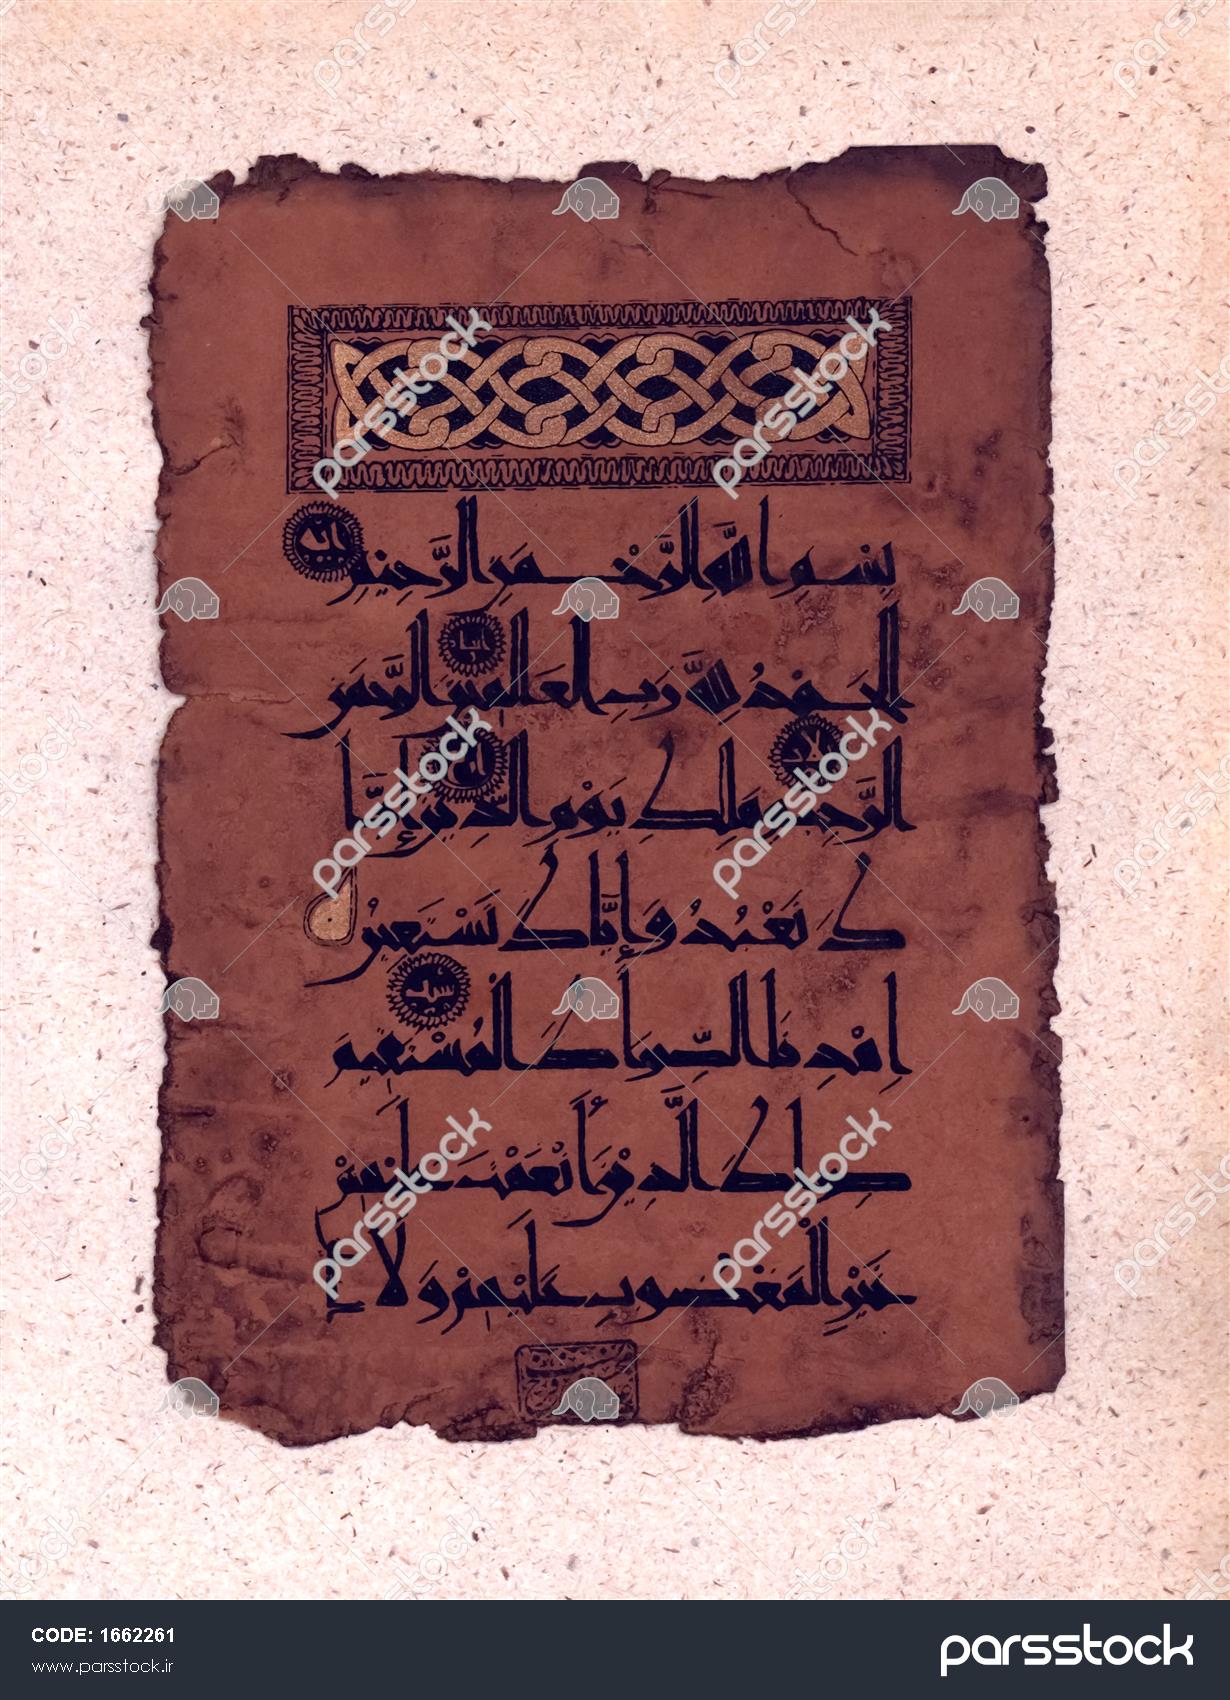 بِسْمِ اللَّهِ الرَّحْمَنِ الرَّحِيمِ
الْحَمْدُ لِلَّهِ رَبِّ الْعَلَمِينَ الرَّحْمَنِ
الرَّحِيمِ مَلِكِ يَوْمِ الدِّينِ إِيَّا
كَ نَعْبُدُ وَإِيَّاكَ نَسْتَعِينُ
اهْدِنَا الصِّرَاطَ الْمُسْتَقِيمَ
صِرَاطَ الَّذِينَ أَنْعَمْتَ عَلَيْهِمْ
غَيْرِ الْمَغْضُوبِ عَلَيْهِمْ وَلَا
parsstock
CODE: 1662261
www.parsstock.ir
parsstock